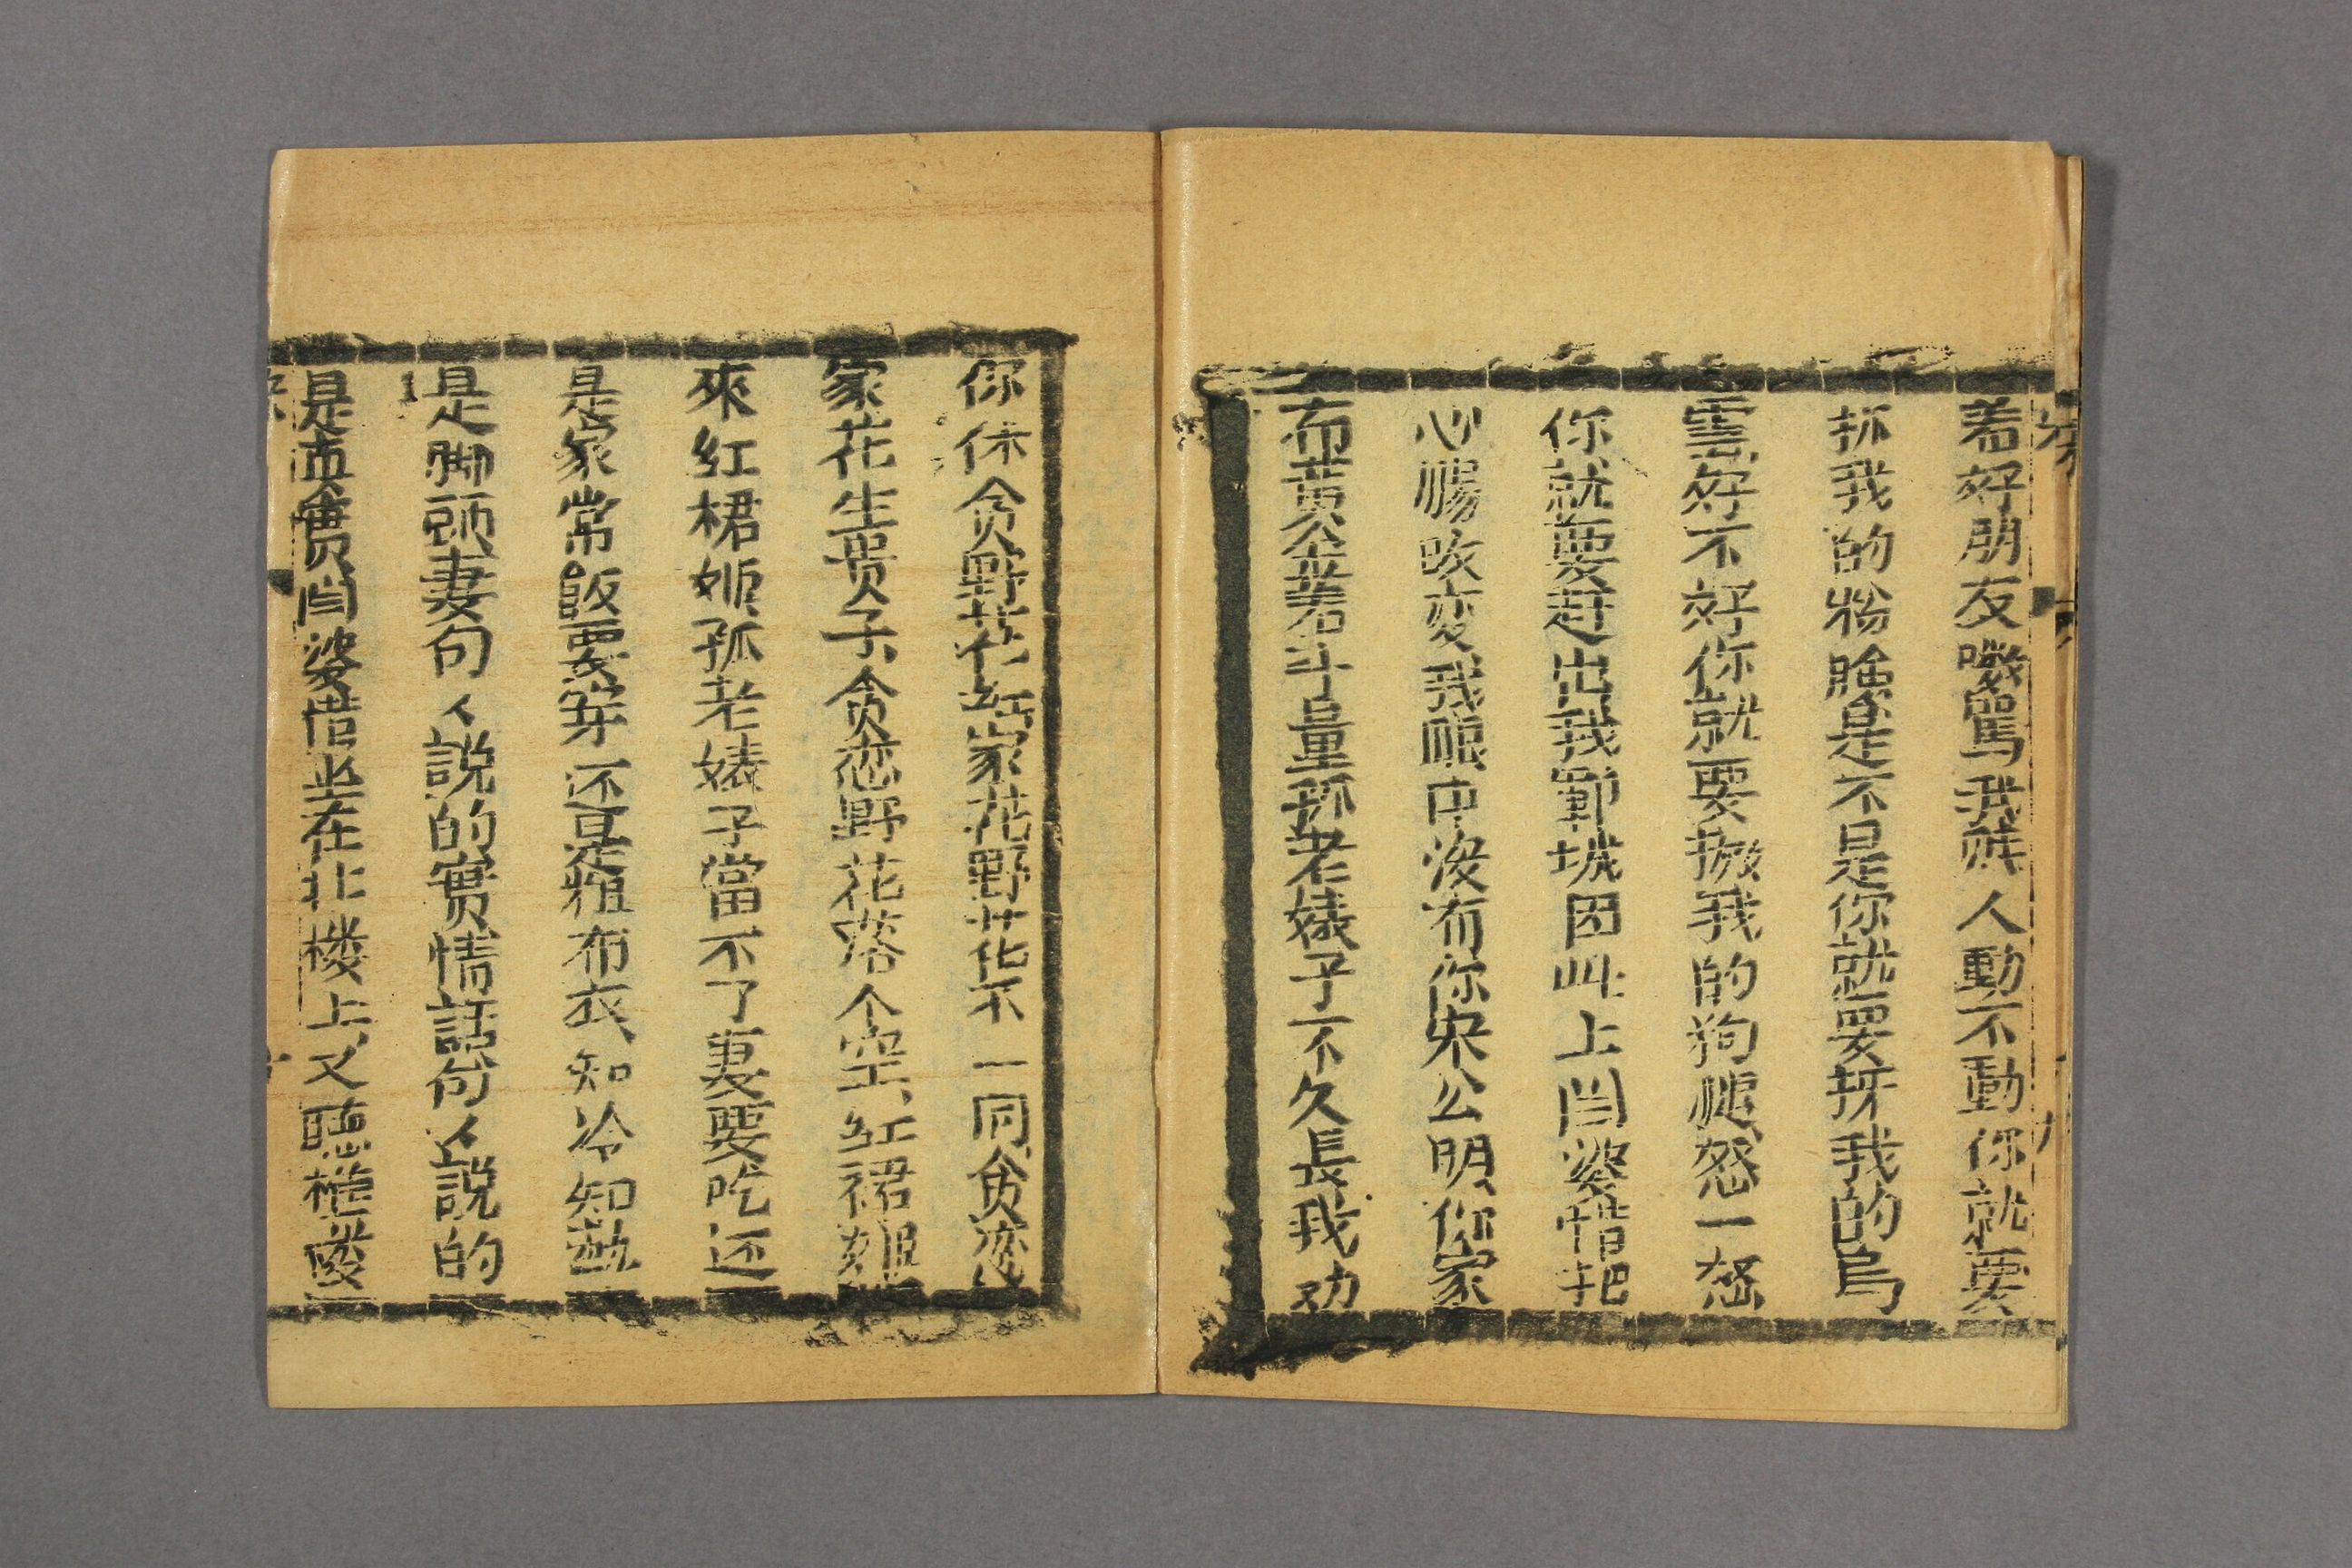 着好朋友嘰罵我賤人動不動你就要
抓我的粉臉是不是你就要抓我的烏
雲好不好你就要揪我的狗腿怒一怒
你就要赶出我鄆城因此上閆婆惜把
心腸改变我眼中没有你宋公明你家
有黄金着斗量孤老婊子不久長我功
你休贪野花红家花野花不一同贪恋
家花生貴子贪恋野花落个空红裙雖
來红裙姬孤老婊子當不了妻要吃还
是家常飯要穿还是粗布衣知冷知熱
是脚頭妻句人說的實情話句人說的
是真實閆婆惜坐在北楼上又聽樵樓